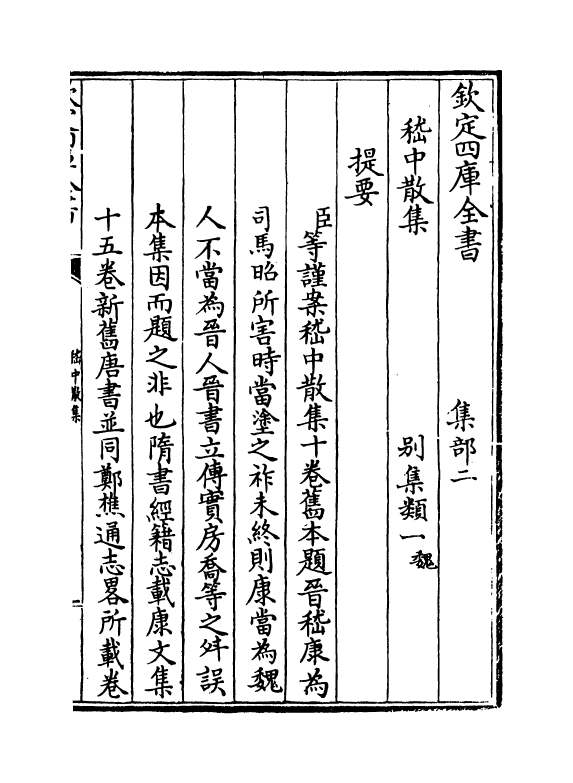 欽定四庫全書　集部二
嵇中散集　别集類一魏
提要
臣等謹案嵇中散集十卷舊本題晉嵇康為
司馬昭所害時當塗之祚未終則康當為魏
人不當為晉人晉書立傳實房喬等之舛誤
本集因而題之非也隋書經籍志載康文集
十五卷新舊唐書並同鄭樵通志畧所載卷
嵇中散集